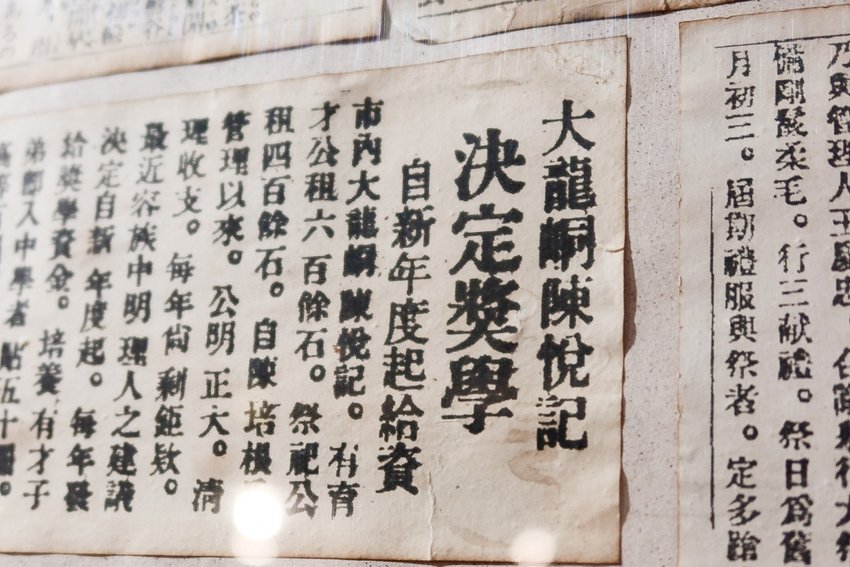 乃與管理人王
備剛鬣柔毛。行三献禮。祭日爲舊
月初三。屆期禮服與祭者。定多踰
大龍峒陳悅記
決定獎學
自新年度起給資
市內大龍峒陳悅記。有育
才公租六百餘石。祭祀公
租四百餘石。自陳培樑
管理以來。公明正大。清
理收支。每年尙剩鉅欵。
最近容族中明理人之建議
決定自新年度起。每年發
給獎學資金。培養有才子
弟卽入中學者貼五十圓。
高等